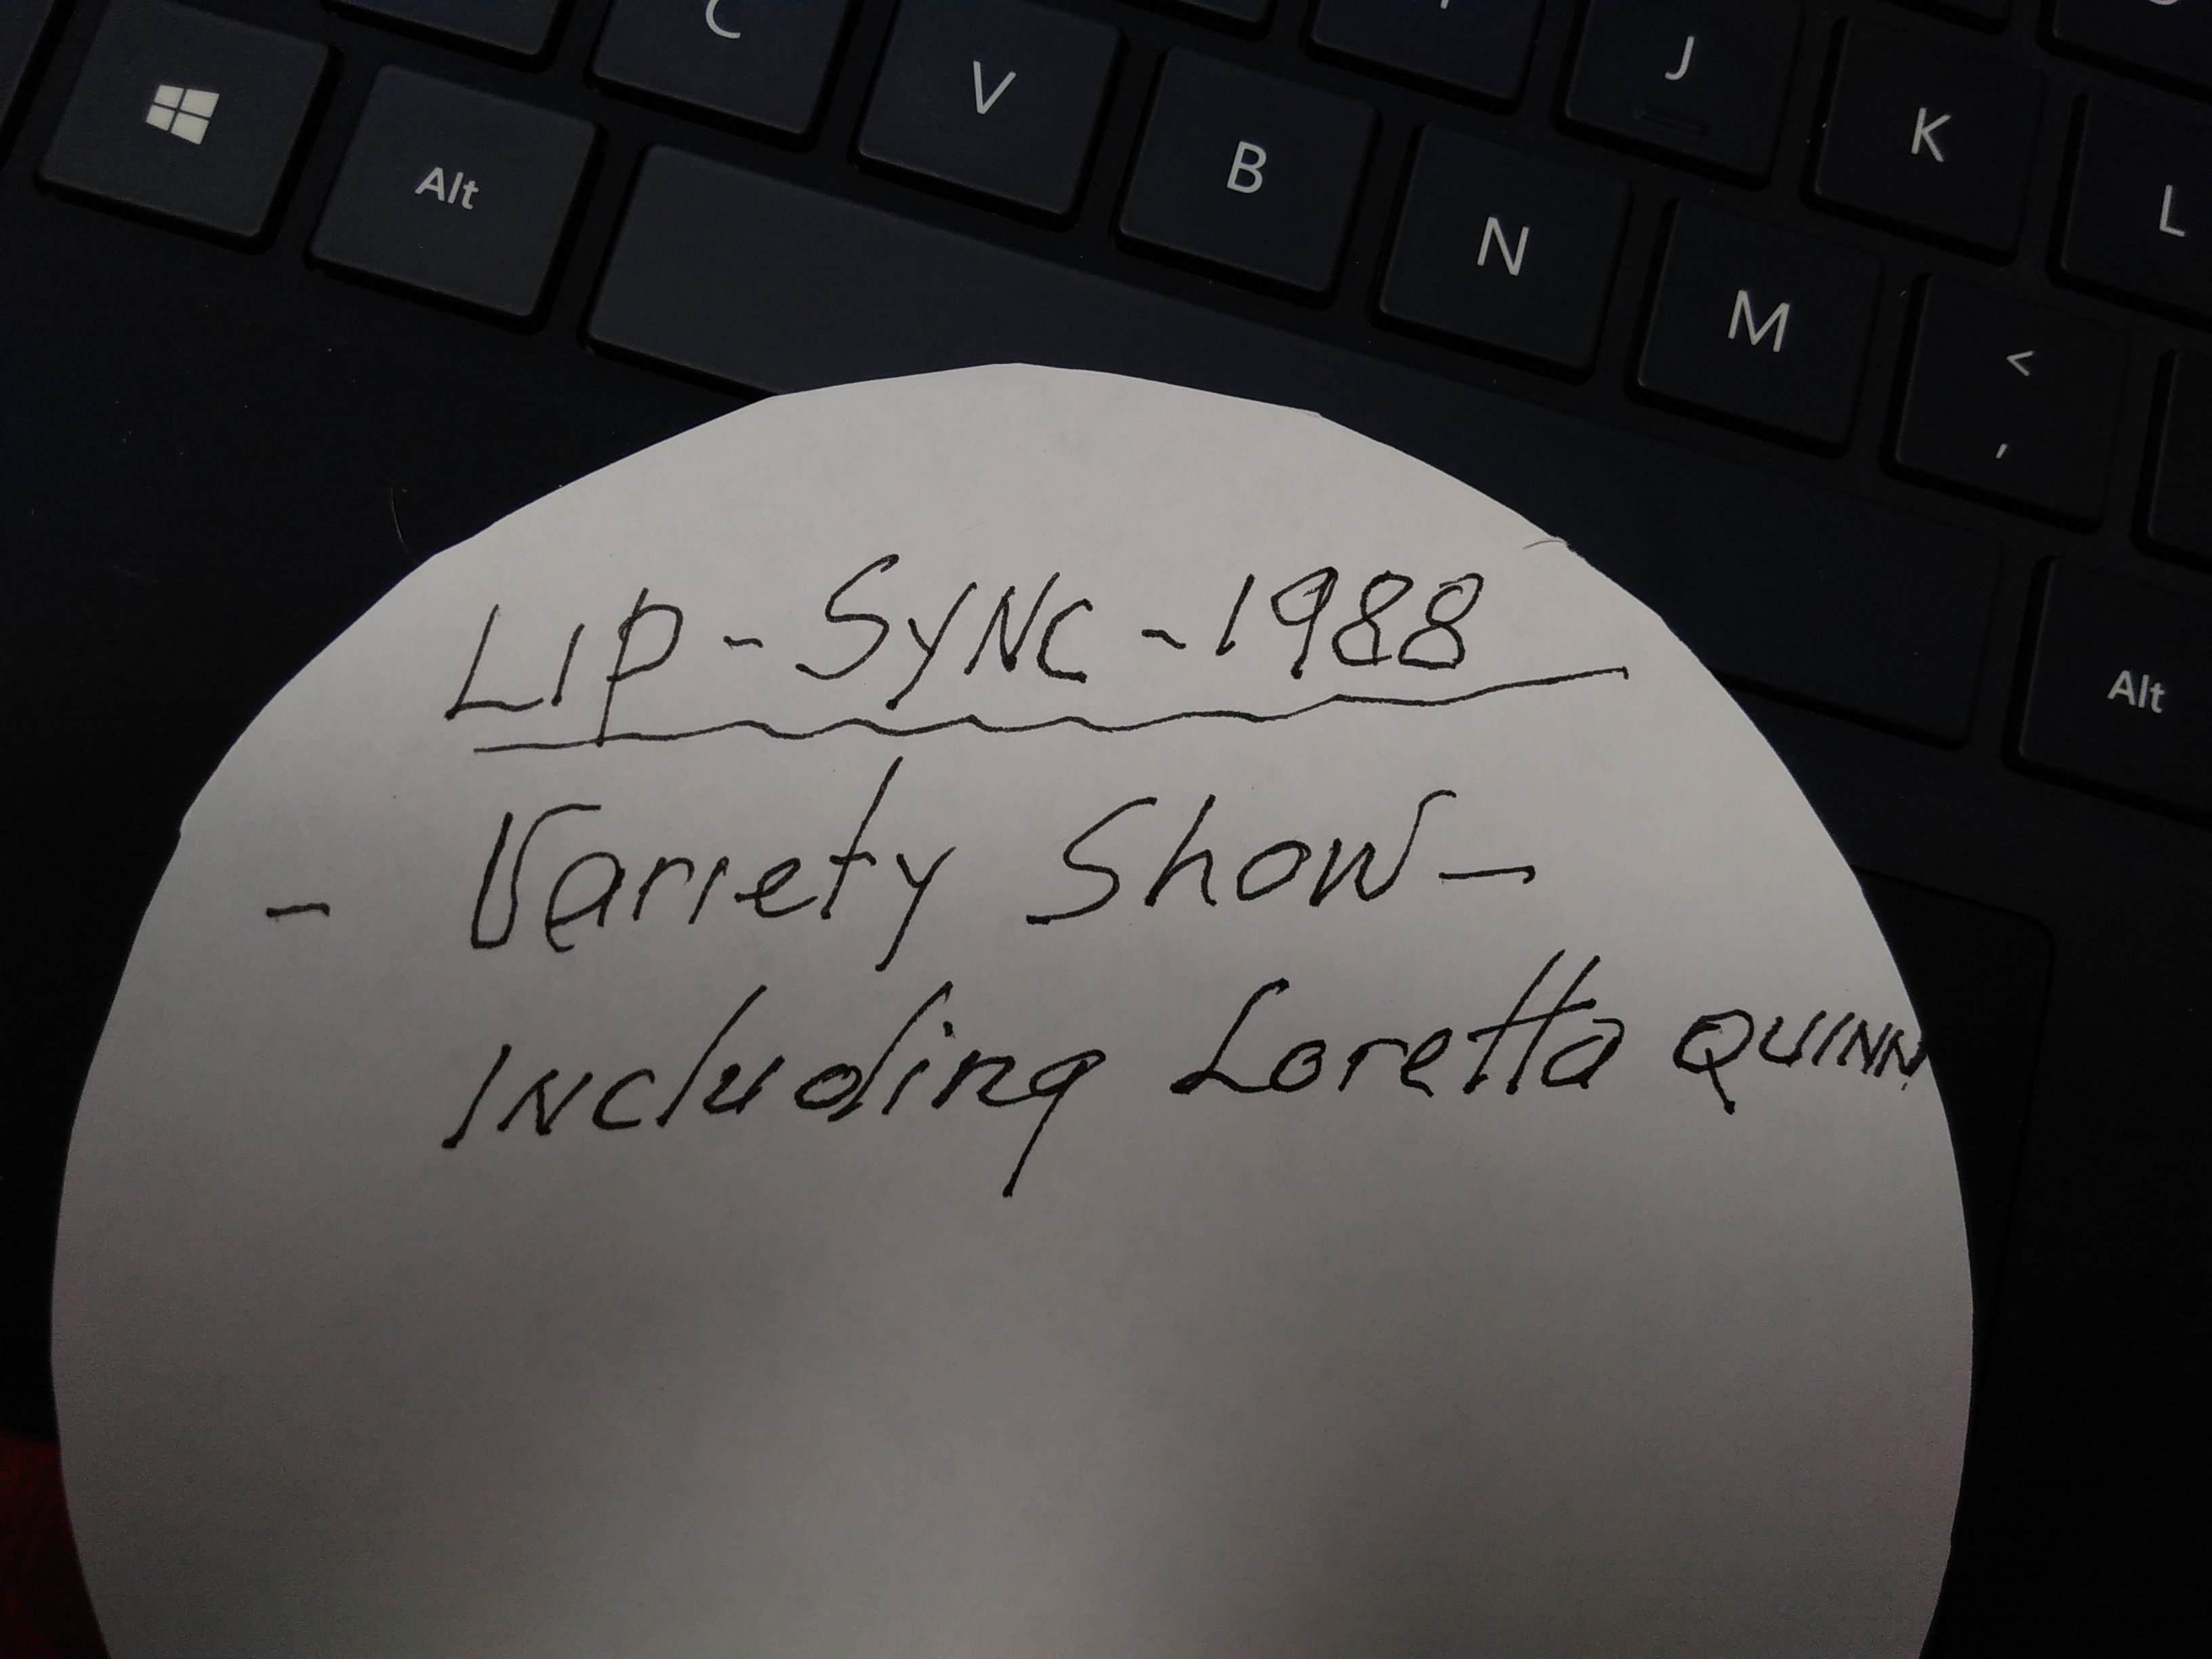 C V J
Alt B K
N L
M <
,
LIP - SYNC - 1988
Alt
- Variety Show -
Including Loretta QUINN